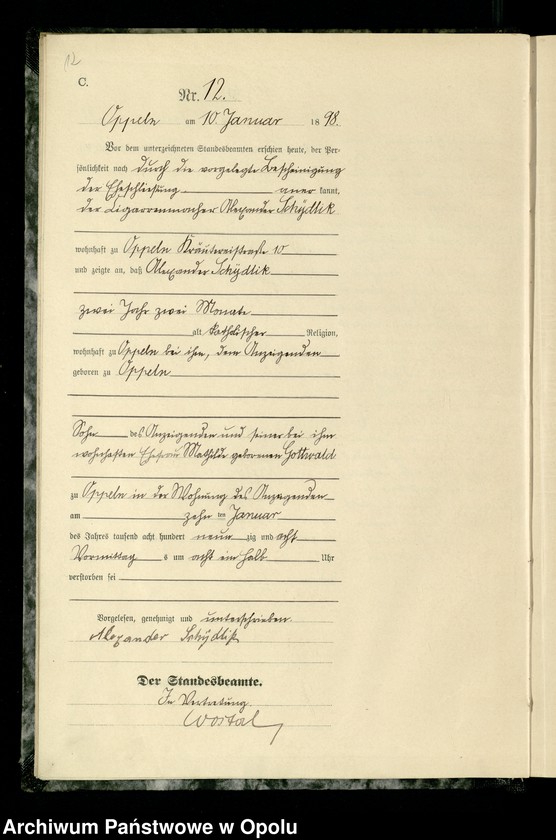 12
C.
Nr. 12.
Oppeln am 10. Januar 1898.
Vor dem unterzeichneten Standesbeamten erschien heute, der Per-
sönlichkeit nach durch die vorgelegte Bescheinigung
der Eheschließung aner kannt,
der Zigarrenmacher Alexander Schÿdlik
wohnhaft zu Oppeln Kräutereistraße 10
und zeigte an, daß Alexander Schÿdlik
zwei Jahr zwei Monate
alt katholischer Religion,
wohnhaft zu Oppeln bei ihm, dem Anzeigenden
geboren zu Oppeln
Sohn des Anzeigenden und seiner bei ihm
wohnhaften Ehefrau Mathilde geborenen Gottwald
zu Oppeln in der Wohnung des Anzeigenden
am zehn ten Januar
des Jahres tausend acht hundert neun zig und acht
Vormittag s um acht ein halb Uhr
verstorben sei
Vorgelesen, genehmigt und unterschrieben
Alexander Schÿdlik
Der Standesbeamte.
In Vertretung
Wostal
Archiwum Państwowe w Opolu